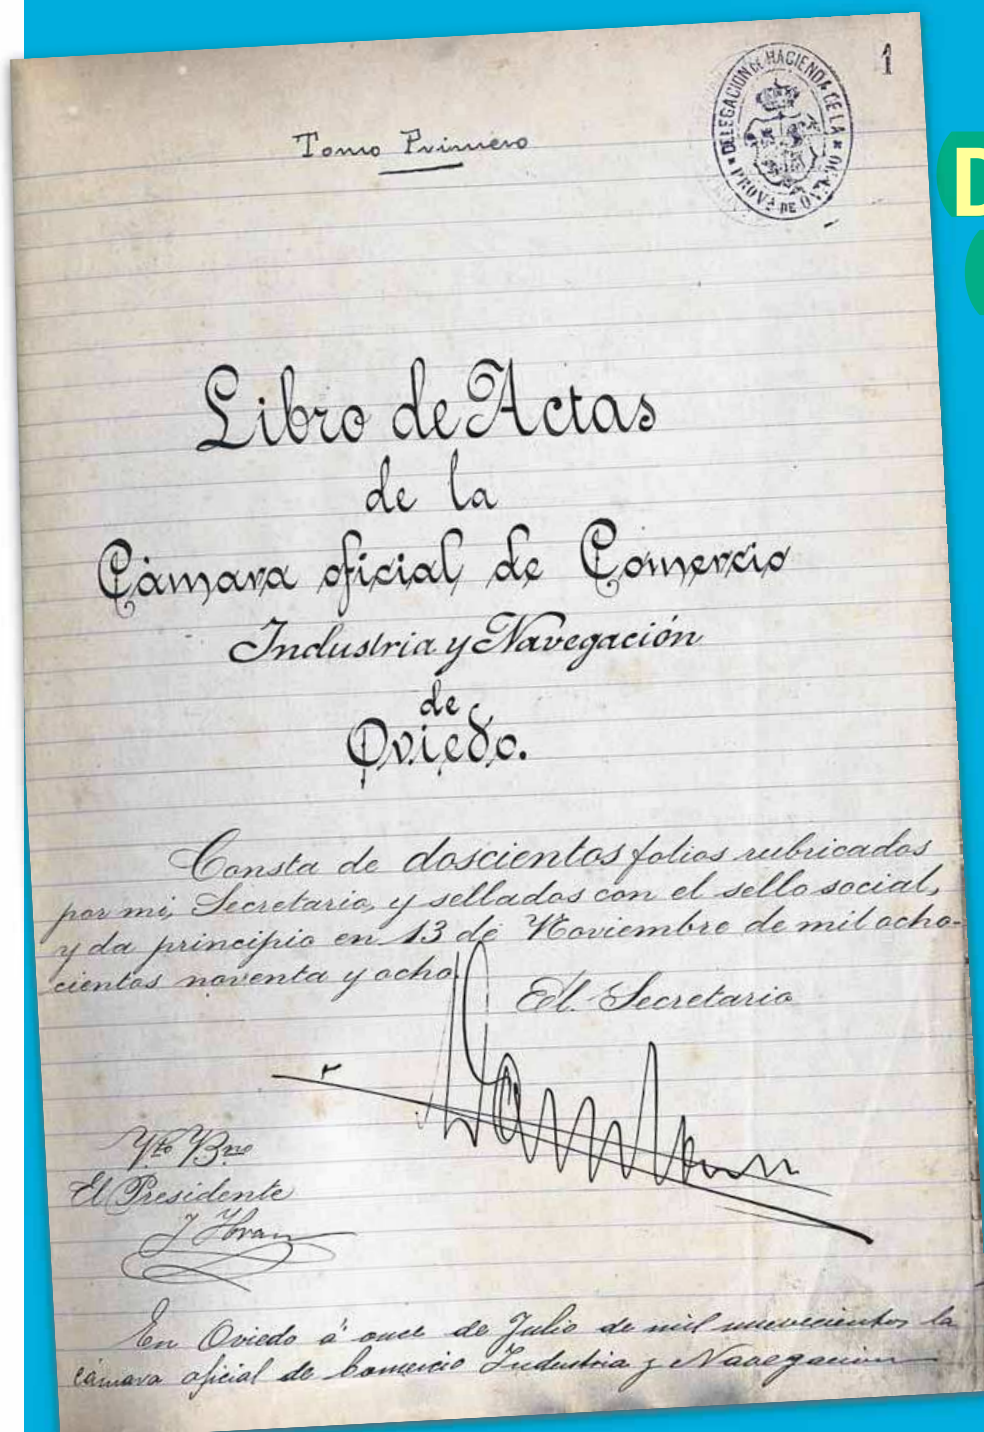 1
DELEGACION DE HACIENDA DE LA PROVª DE OVIEDO
Tomo Primero
D
Libro de Actas
de la
Cámara oficial de Comercio
Industria y Navegación
de
Oviedo.
Consta de doscientos folios rubricados
por mi, Secretario, y sellados con el sello social,
y da principio en 13 de Noviembre de mil ocho-
cientos noventa y ocho.
El Secretario
Vto Bno
El Presidente
En Oviedo á once de Julio de mil novecientos la
cámara oficial de Comercio Industria y Navegacion